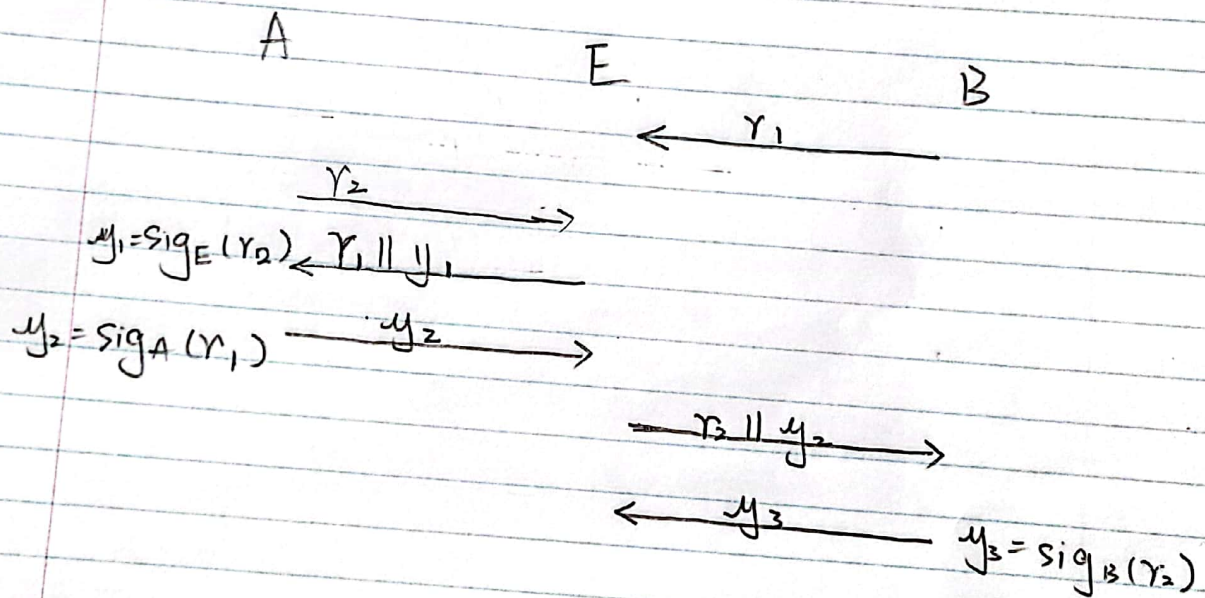 A
E
B
r₁
r₂
y₁=sig_E(r₂) r₁||y₁
y₂=sig_A(r₁) y₂
r₂||y₂
y₃
y₃=sig_B(r₂)